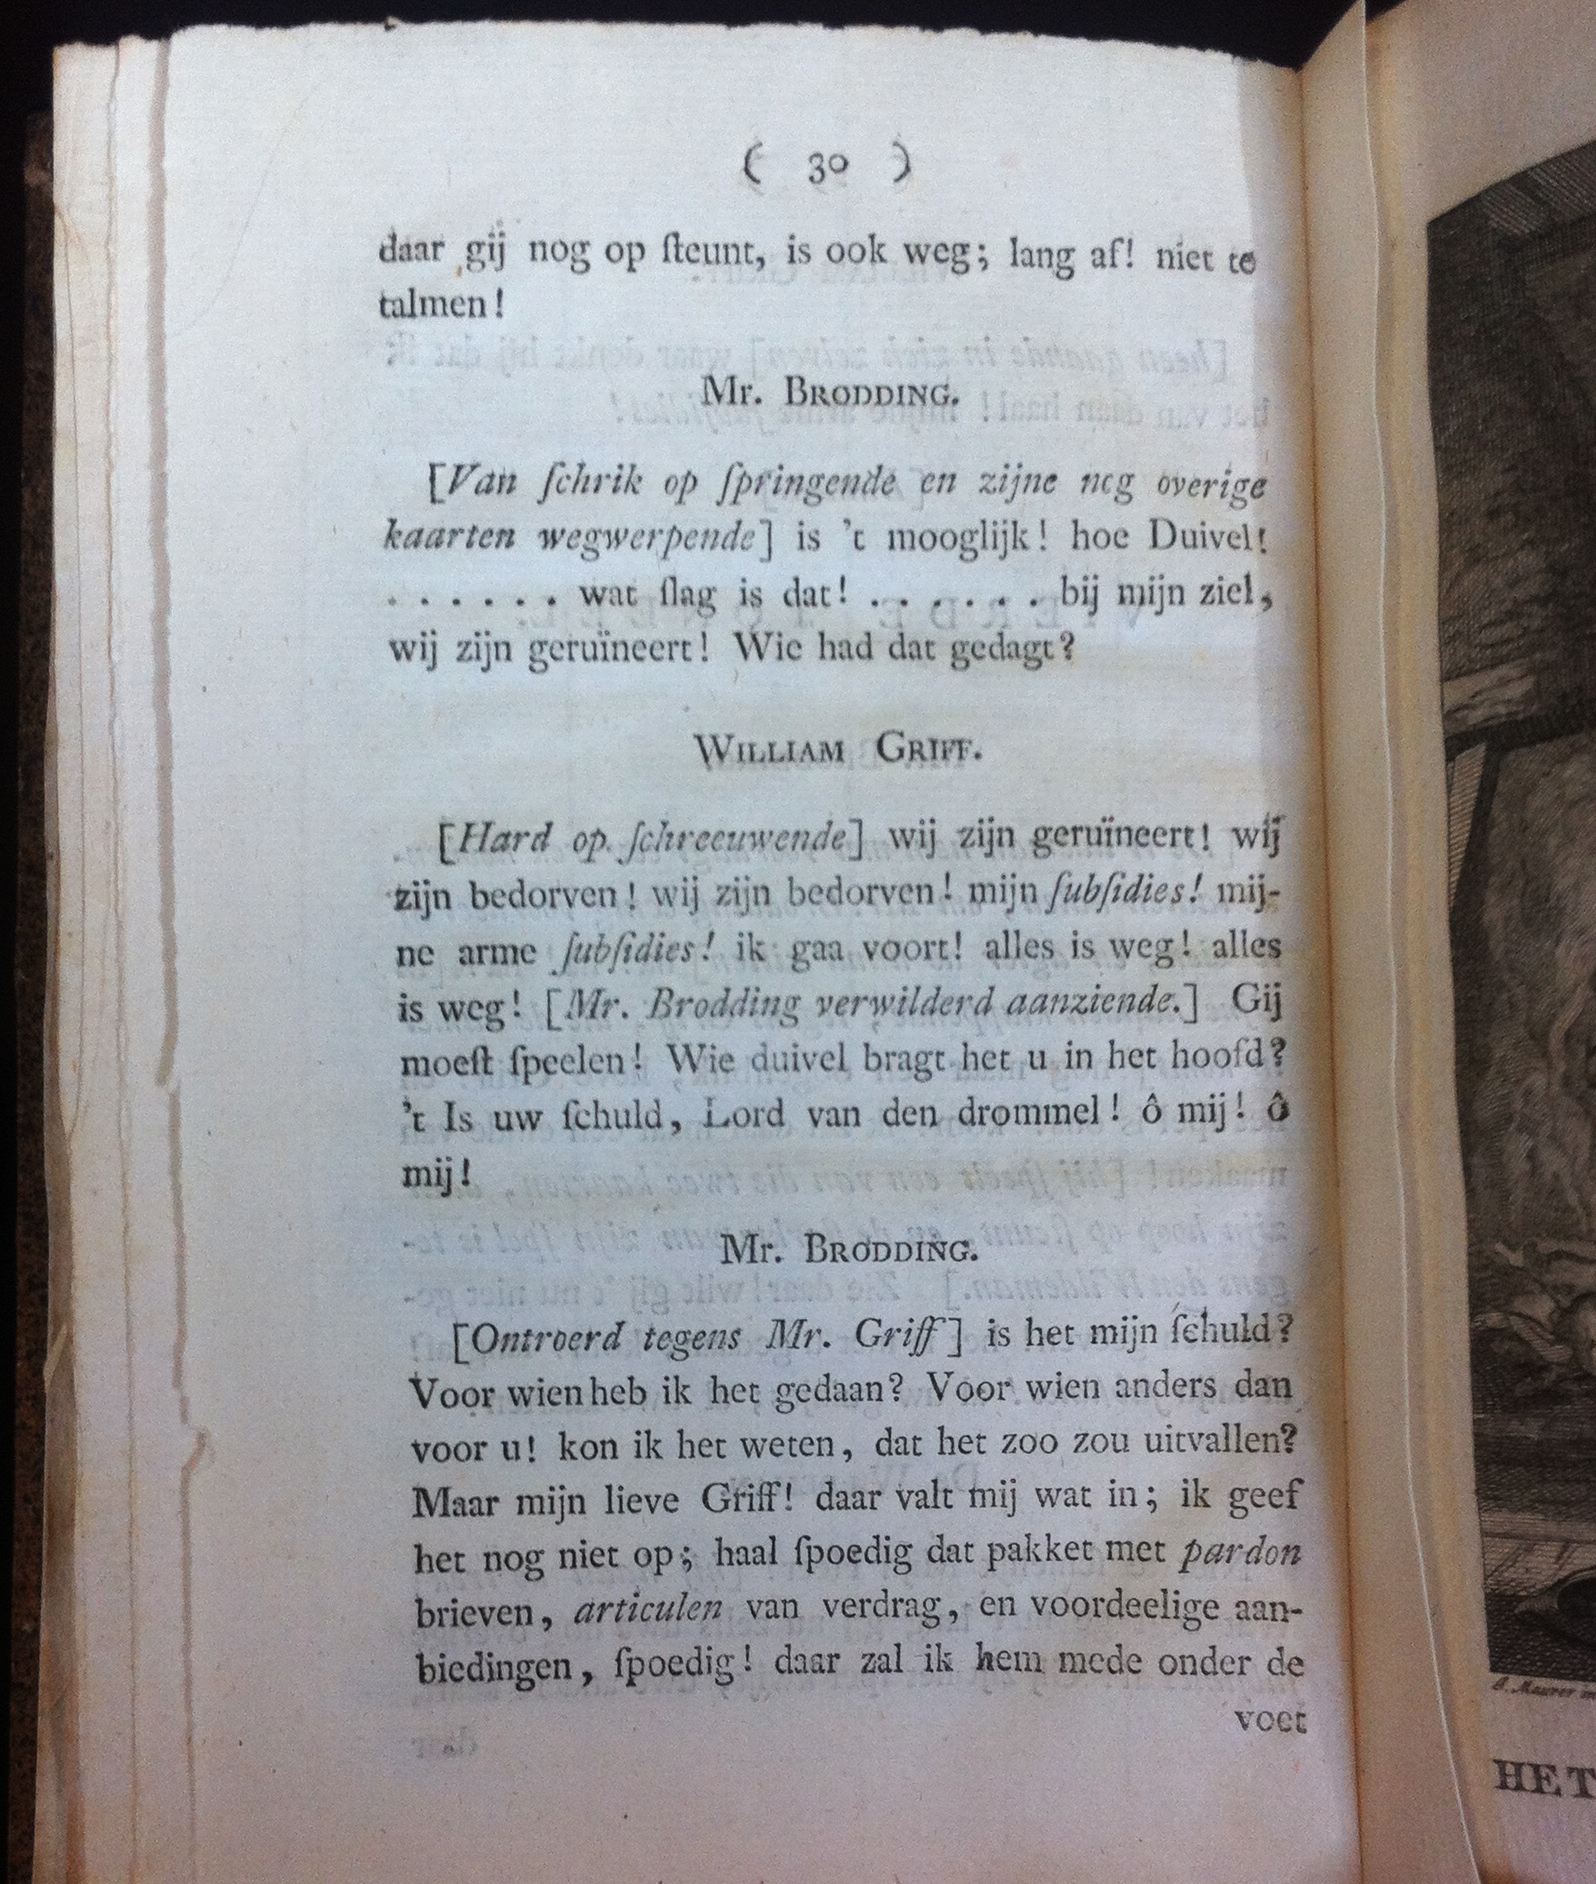 ( 30 )
daar gij nog op ſteunt, is ook weg; lang af! niet te
talmen!
Mr. Brodding.
[Van ſchrik op ſpringende en zijne nog overige
kaarten wegwerpende] is 't mooglijk! hoe Duivel!
. . . . . . wat ſlag is dat! . . . . . . bij mijn ziel,
wij zijn geruïneert! Wie had dat gedagt?
William Griff.
[Hard op ſchreeuwende] wij zijn geruïneert! wij
zijn bedorven! wij zijn bedorven! mijn ſubſidies! mij-
ne arme ſubſidies! ik gaa voort! alles is weg! alles
is weg! [Mr. Brodding verwilderd aanziende.] Gij
moeſt ſpeelen! Wie duivel bragt het u in het hoofd?
't Is uw ſchuld, Lord van den drommel! ô mij! ô
mij!
Mr. Brodding.
[Ontroerd tegens Mr. Griff] is het mijn ſchuld?
Voor wien heb ik het gedaan? Voor wien anders dan
voor u! kon ik het weten, dat het zoo zou uitvallen?
Maar mijn lieve Griff! daar valt mij wat in; ik geef
het nog niet op; haal ſpoedig dat pakket met pardon
brieven, articulen van verdrag, en voordeelige aan-
biedingen, ſpoedig! daar zal ik hem mede onder de
voet
HET